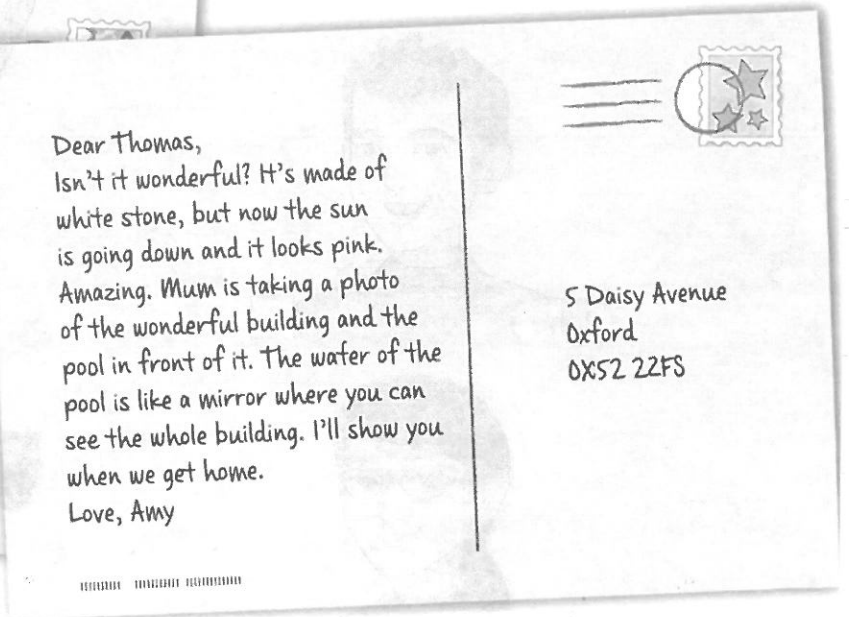 Dear Thomas,
Isn't it wonderful? It's made of
white stone, but now the sun
is going down and it looks pink.
Amazing. Mum is taking a photo
of the wonderful building and the
pool in front of it. The water of the
pool is like a mirror where you can
see the whole building. I'll show you
when we get home.
Love, Amy
5 Daisy Avenue
Oxford
OX52 2ZFS